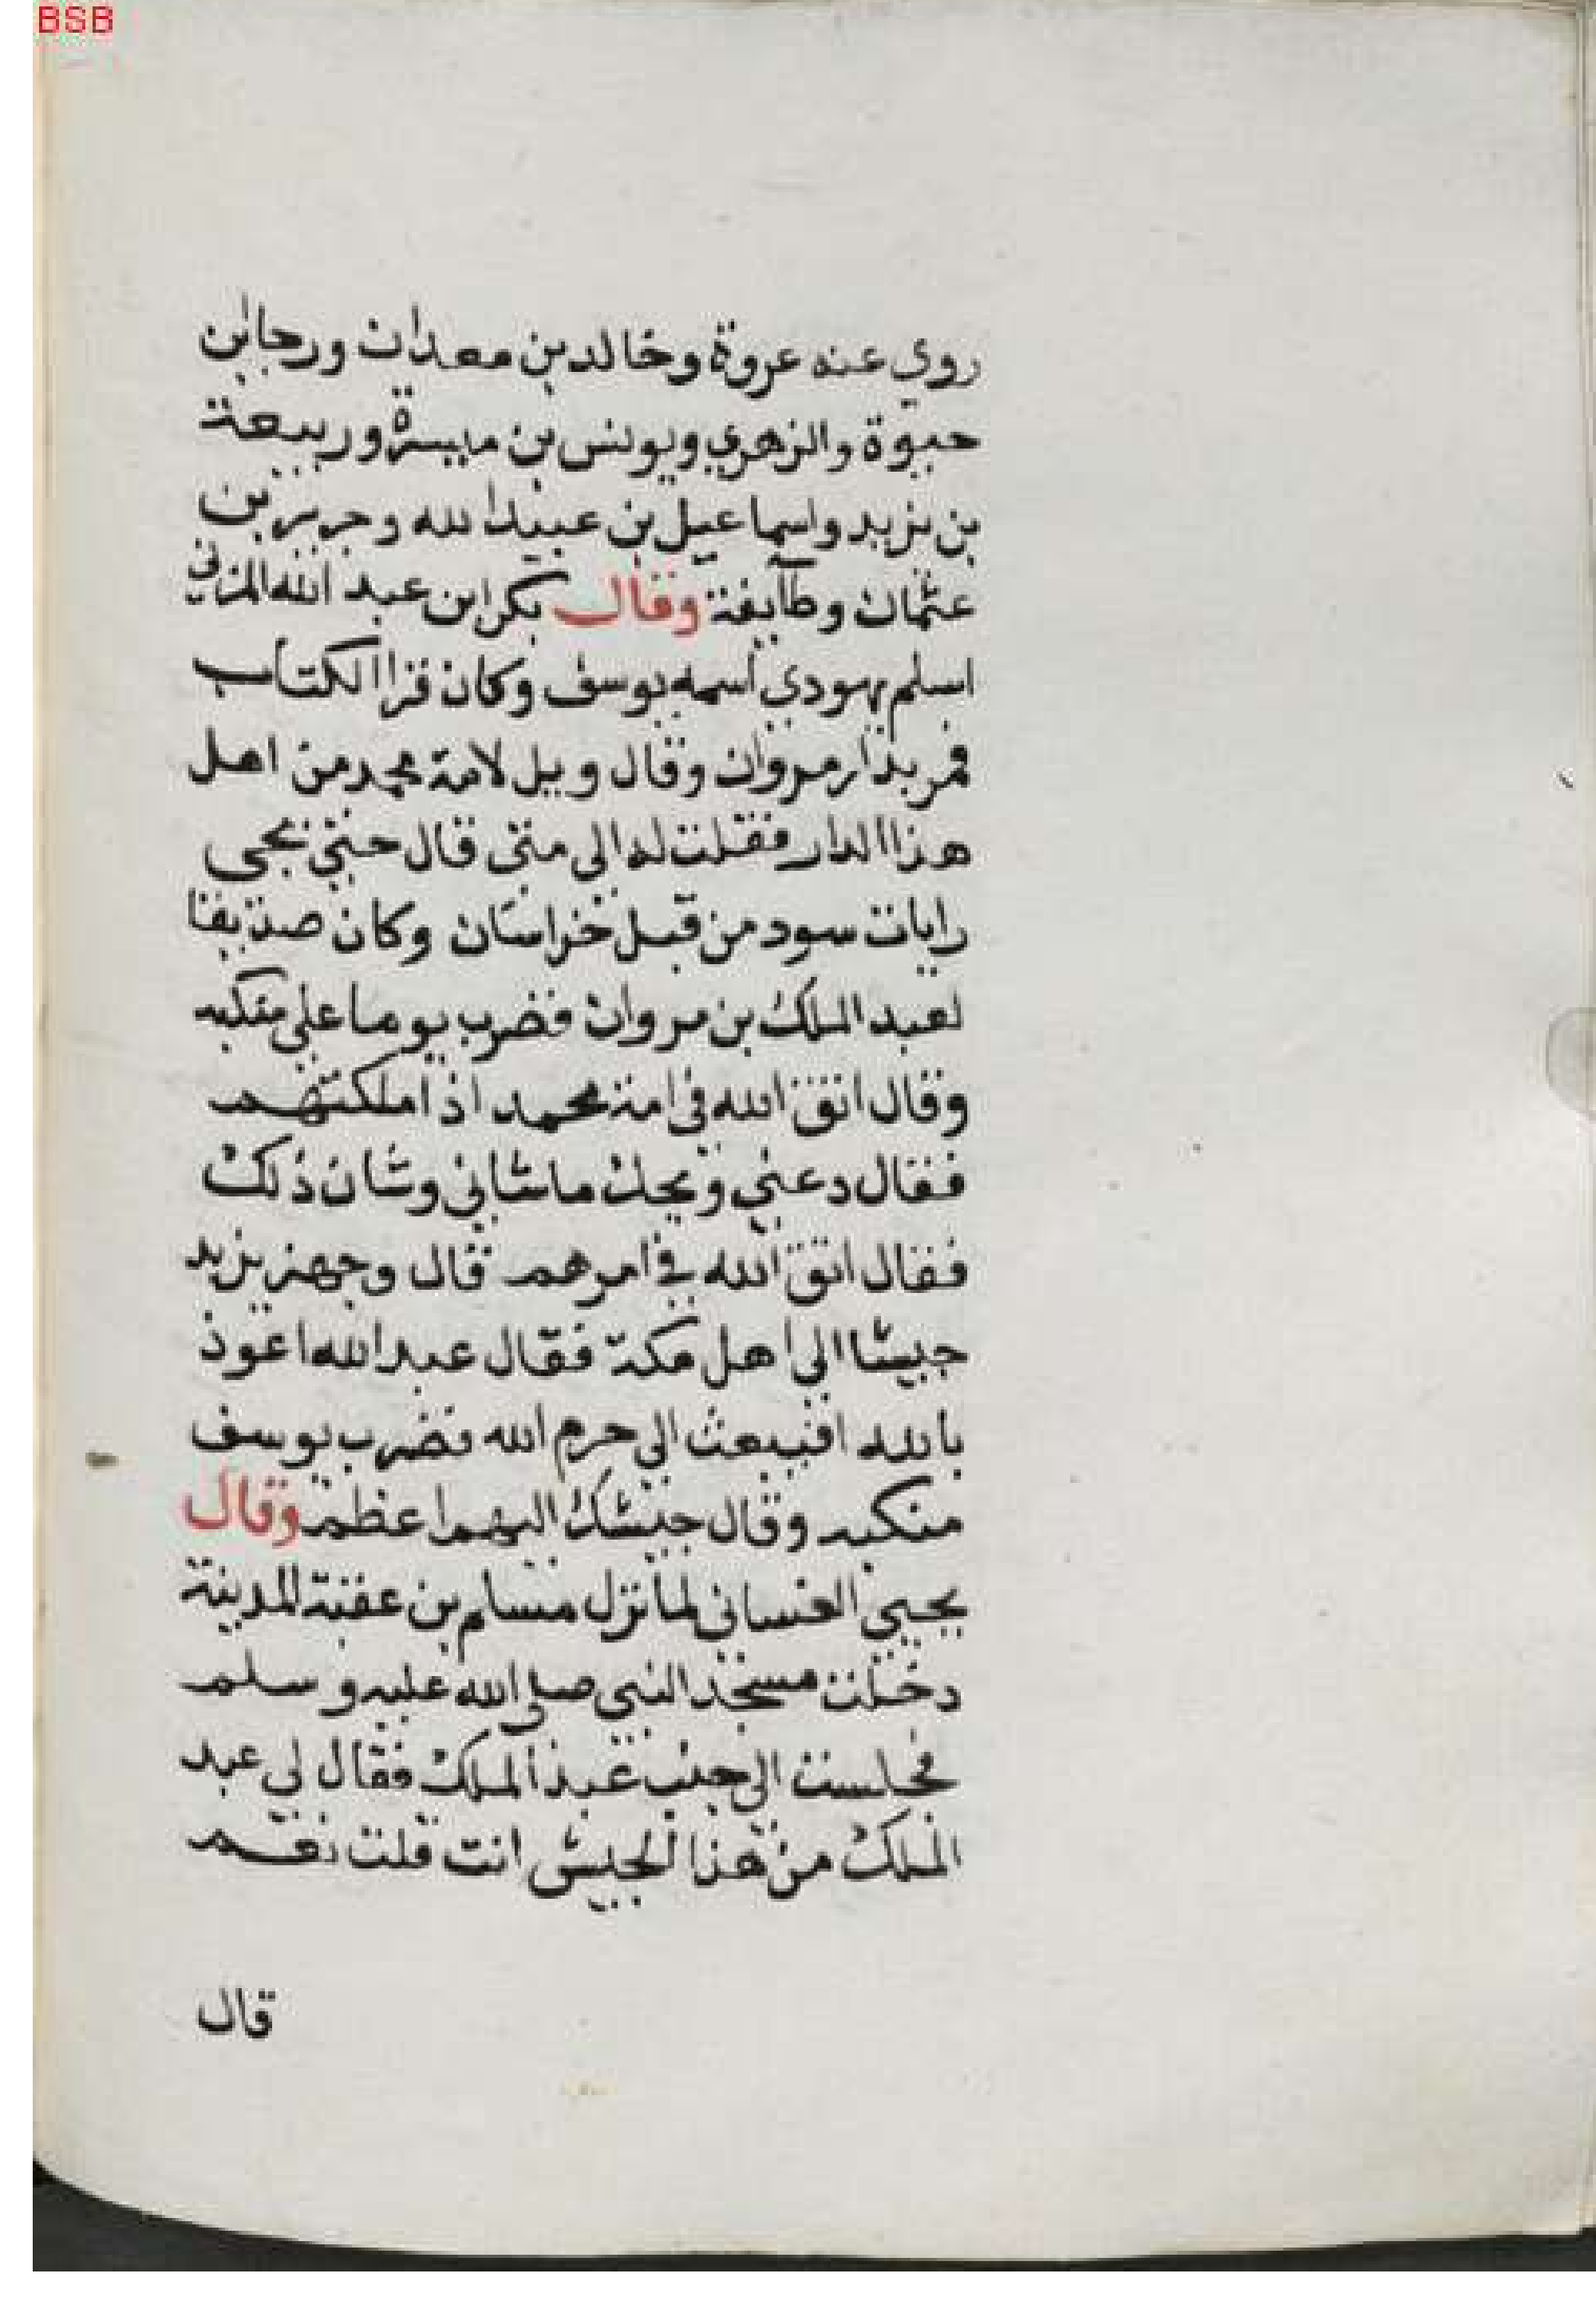 BSB
روي عنه عروة وخالد بن معدان ورجا بن
حيوة والزهري ويونس بن ميسرة وربيعة
بن يزيد واسماعيل بن عبيد الله وجرير بن
عثمان وطآيفة وقال بكر ابن عبد الله المزني
اسلم يهودي اسمه يوسف وكان قرا الكتاب
فمر بدار مروان وقال ويل لامة محمد من اهل
هذا الدار فقلت له الى متى قال حتى تجي
رايات سود من قبل خراسان وكان صديقا
لعبد الملك بن مروان فضرب يوما على منكبه
وقال اتق الله في امة محمد اذا ملكتهم
فقال دعني ويحك ما شاني وشان ذلك
فقال اتق الله في امرهم قال وجهز يزيد
جيشا الى اهل مكة فقال عبد الله اعوذ
بالله افيبعث الى حرم الله فضرب يوسف
منكبه وقال جيشك اليهم اعظم وقال
يحيى الغساني لما نزل مسلم بن عقبة المدينة
دخلت مسجد النبي صلى الله عليه وسلم
فجلست الى جنب عبد الملك فقال لي عبد
الملك من هذا الجيش انت قلت نعم
قال